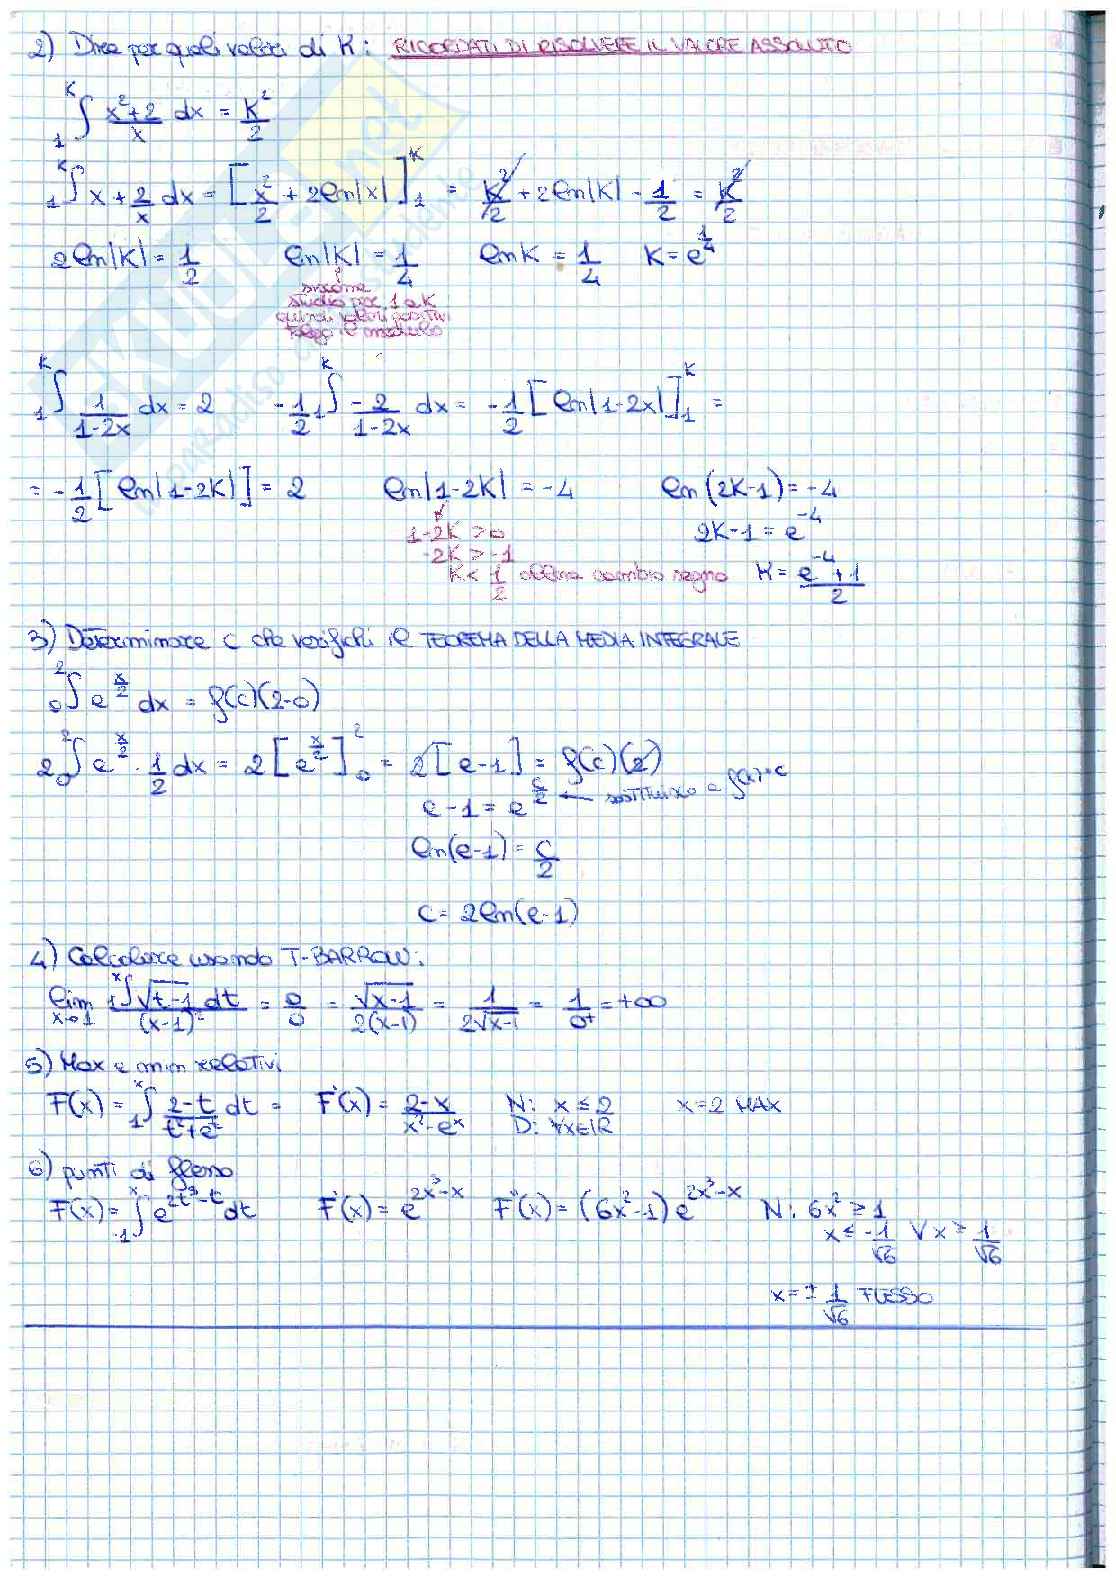 2) Dire per quali valori di K: RICORDATI DI RISOLVERE IL VALORE ASSOLUTO
₁∫ᴷ (x²+2)/x dx = K²/2
₁∫ᴷ x + 2/x dx = [x²/2 + 2ln|x|]₁ᴷ = K²/2 + 2ln|K| - 1/2 = K²/2
2ln|K| = 1/2 ln|K| = 1/4 lnK = 1/4 K = e^(1/4)
siccome
studio per 1 a K
quindi valori positivi
tolgo il modulo
₁∫ᴷ 1/(1-2x) dx = 2 -1/2 ₁∫ᴷ -2/(1-2x) dx = -1/2 [ln|1-2x|]₁ᴷ =
= -1/2 [ln|1-2K|] = 2 ln|1-2K| = -4 ln(2K-1) = -4
1-2K > 0 2K-1 = e^-4
-2K > -1
K < 1/2 cambio segno K = (e^-4 + 1)/2
3) Determinare c che verifichi il TEOREMA DELLA MEDIA INTEGRALE
₀∫² e^(x/2) dx = f(c)(2-0)
2 ₀∫² e^(x/2) · 1/2 dx = 2 [e^(x/2)]₀² = 2[e-1] = f(c)(2)
e-1 = e^(c/2) ← sostituisco a
ln(e-1) = c/2
c = 2ln(e-1)
4) Calcolare usando T-BARROW:
lim x→1 ₁∫ˣ √(t-1) dt / (x-1)² = 0/0 = √(x-1) / 2(x-1) = 1/(2√(x-1)) = 1/0⁺ = +∞
5) Max e min relativi
F(x) = ₁∫ˣ (2-t)/(t²+eᵗ) dt = F'(x) = (2-x)/(x²-eˣ) N: x ≤ 2 x=2 MAX
D: ∀x∈ℝ
6) punti di flesso
F(x) = ₋₁∫ˣ e^(2t³-t) dt F'(x) = e^(2x³-x) F''(x) = (6x²-1) e^(2x³-x) N: 6x² ≥ 1
x ≤ -1/√6 ∨ x ≥ 1/√6
x = ± 1/√6 FLESSO